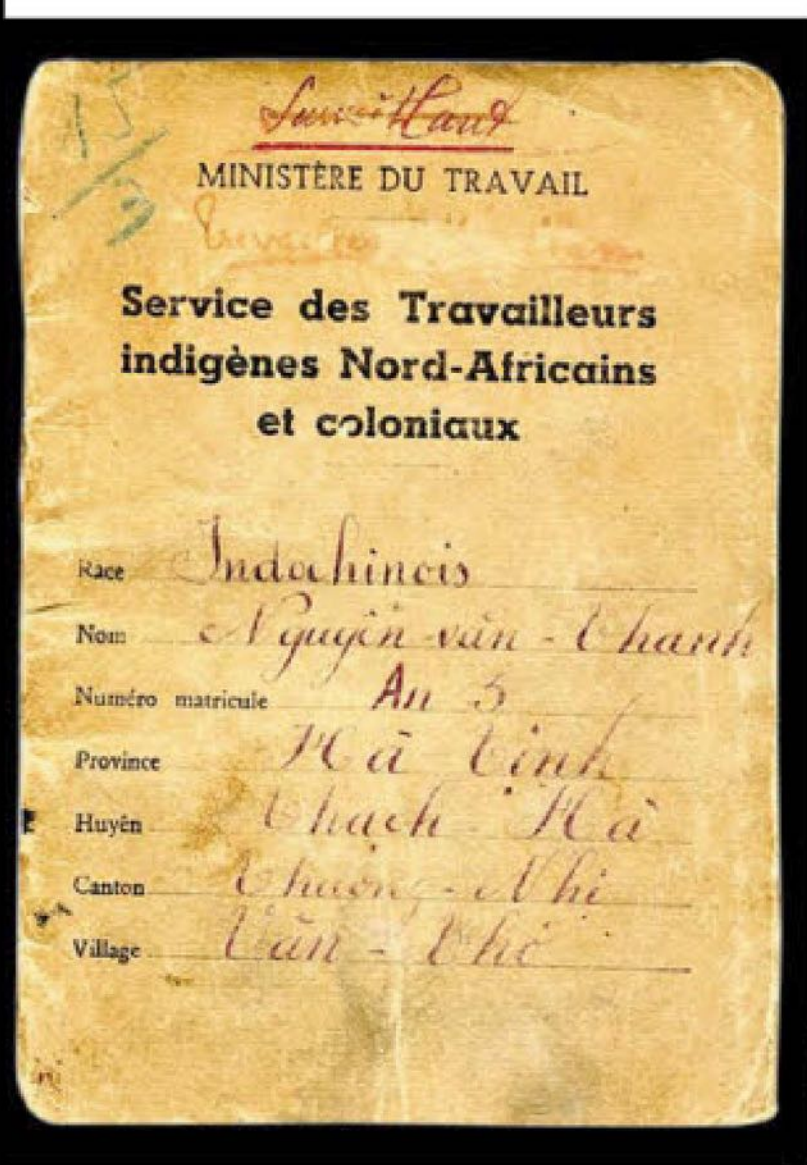 MINISTÈRE DU TRAVAIL
Service des Travailleurs
indigènes Nord-Africains
et coloniaux
Race Indochinois
Nom Nguyễn-văn-Thanh
Numéro matricule An 3
Province Hà Tinh
Huyên Thạch-Hà
Canton Thương-Nhi
Village Văn-Thố